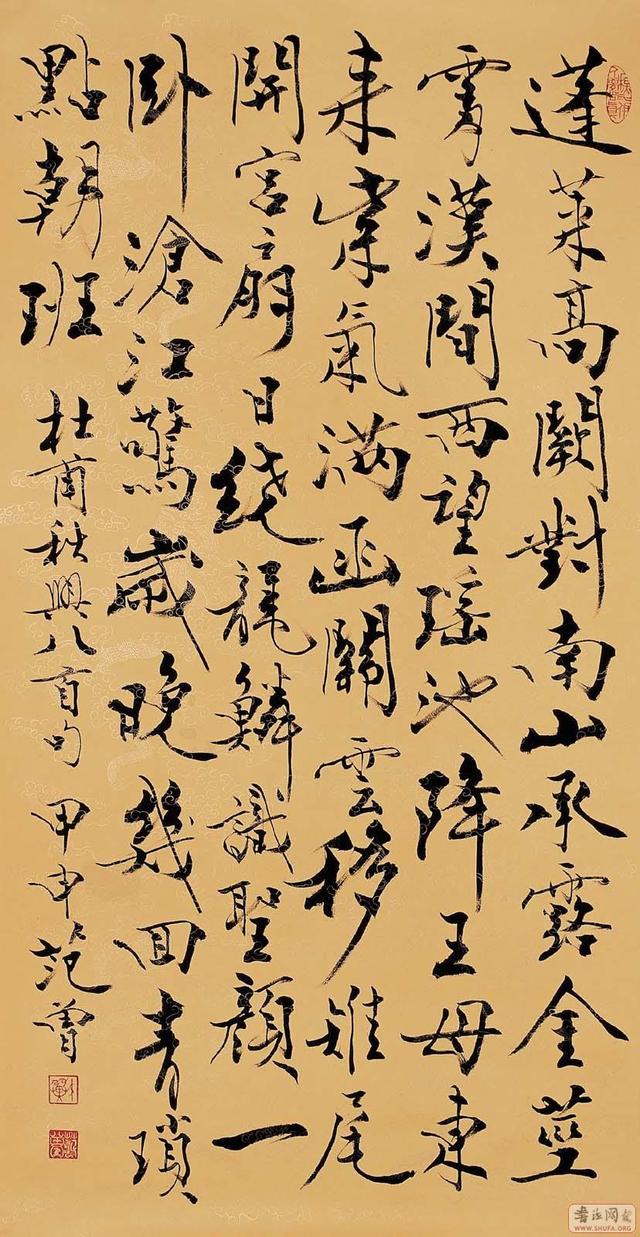 蓬萊高闕對南山承露金莖
霄漢間西望瑶池降王母東
来紫氣满函關雲移雉尾
開宮扇日绕龍鳞識聖顔一
卧滄江驚歲晚幾回青瑣
點朝班 杜甫秋興八首句 甲申范曾
书法网
WWW.SHUFA.ORG